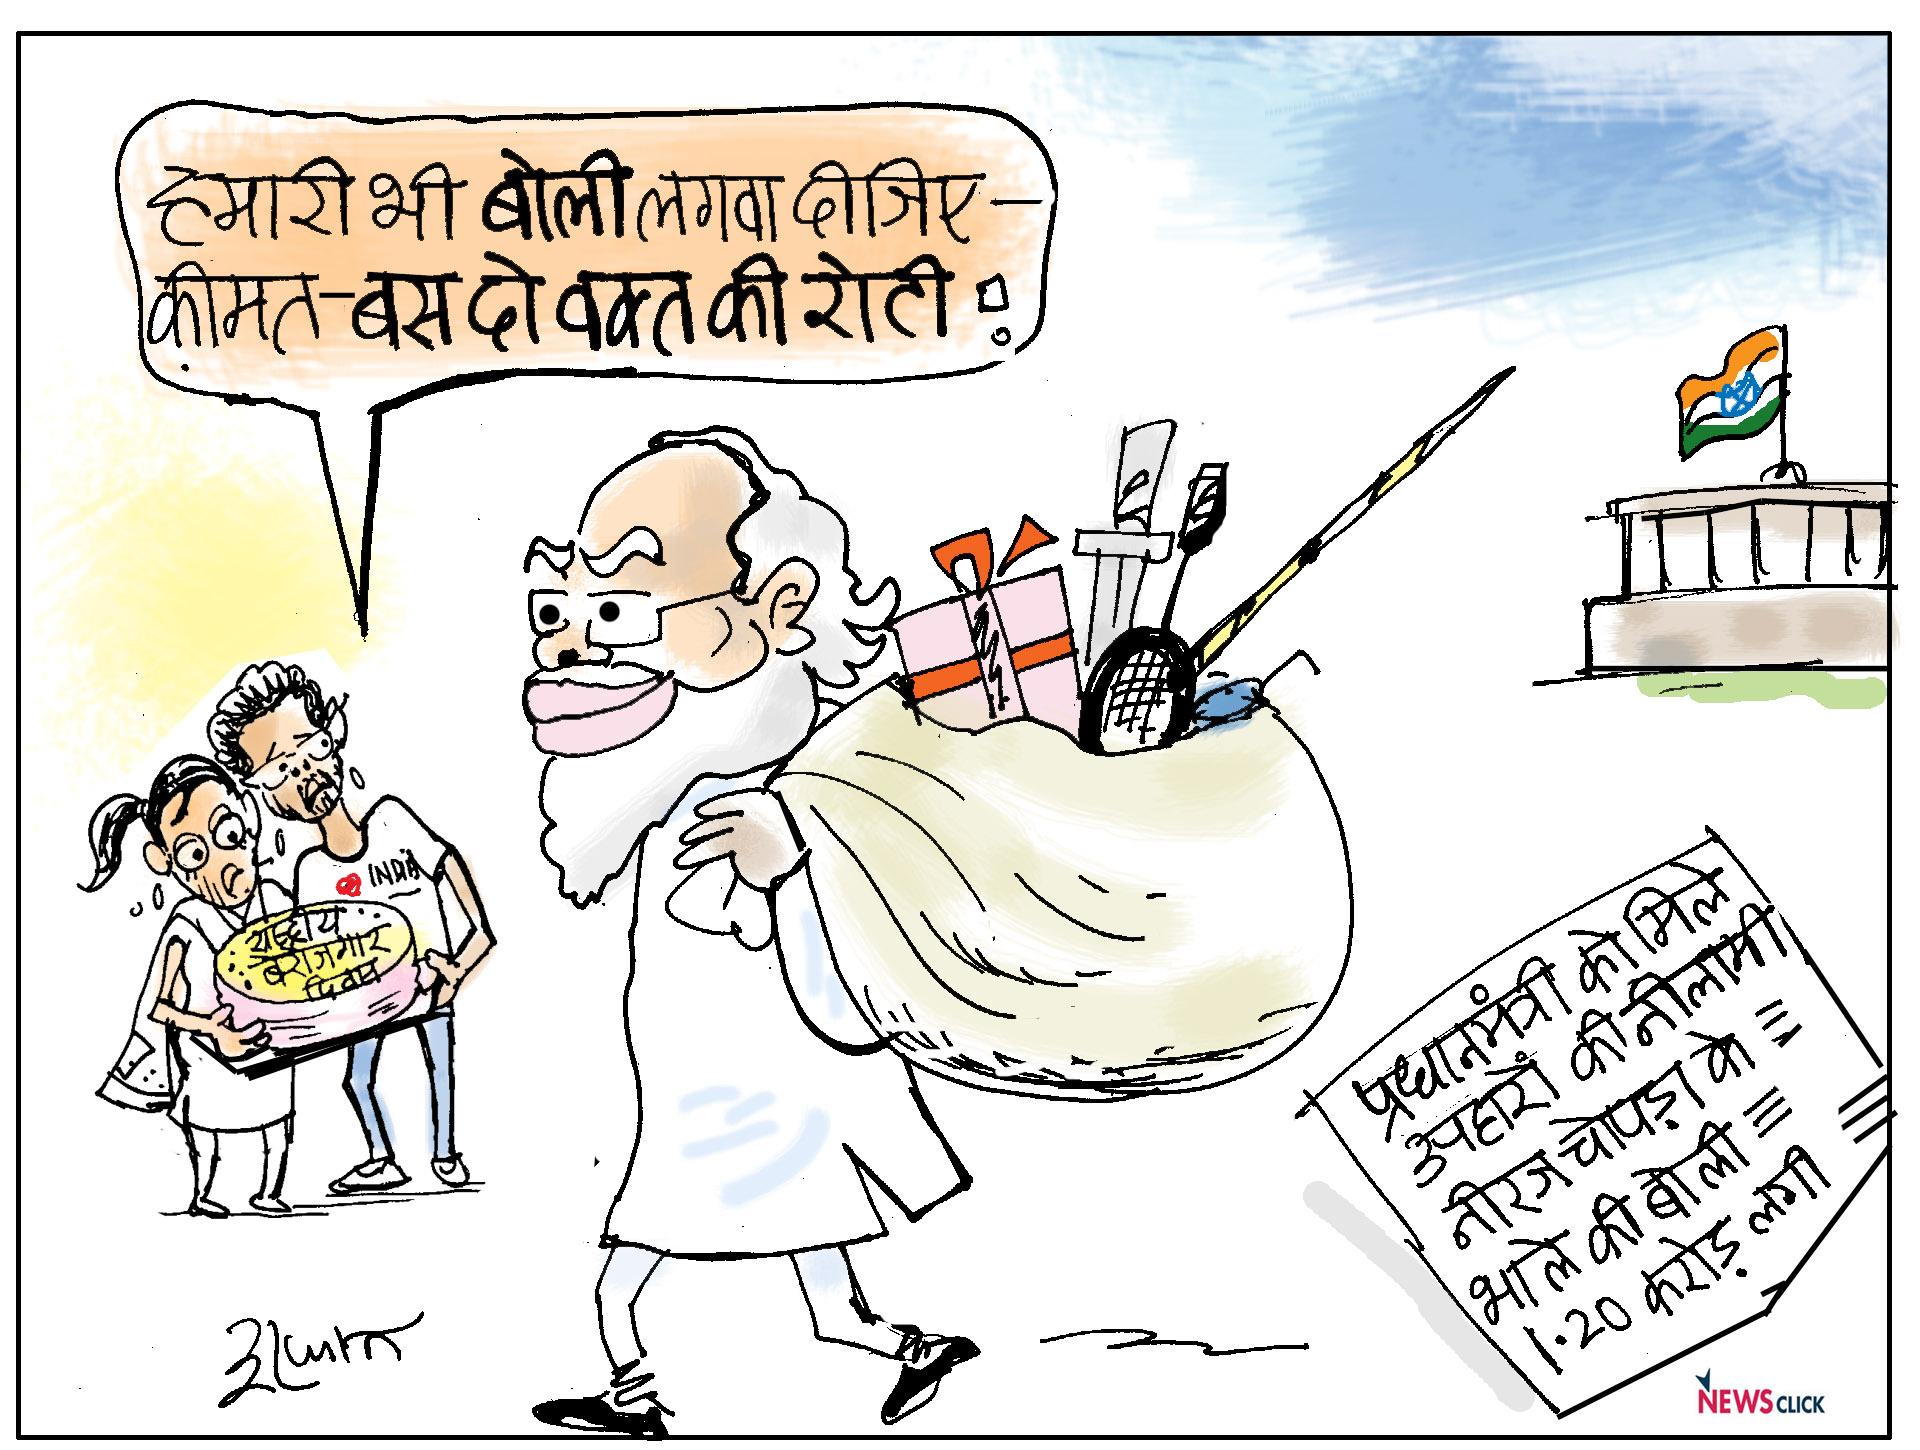 हमारी भी बोली लगवा दीजिए –
कीमत – बस दो वक्त की रोटी !
INDIA
राष्ट्रीय
बेरोजगार
दिवस
प्रधानमंत्री को मिले
उपहारों की नीलामी
नीरज चोपड़ा के
भाले की बोली
1.20 करोड़ लगी
NEWSCLICK